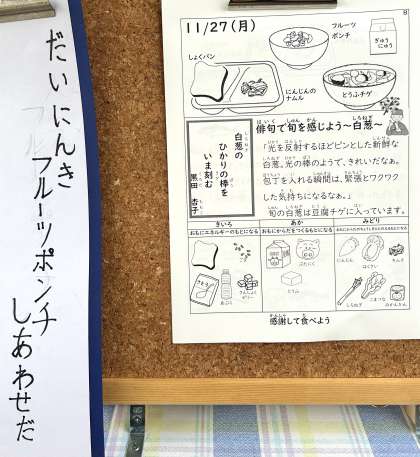 だいにんき
フルーツポンチ
しあわせだ
8
11/27(月)
フルーツ
ポンチ
ぎゅう
にゅう
しょくパン
にんじんの
ナムル
とうふチゲ
俳句で旬を感じよう～白葱～
「光を反射するほどピンとした新鮮な
白葱。光の棒のようで、きれいだなぁ。
包丁を入れる瞬間は、緊張とワクワク
した気持ちになるなぁ。」
旬の白葱は豆腐チゲに入っています。
白葱の
ひかりの棒を
いま刻む
黒田 杏子
きいろ
おもにエネルギーのもとになる
あか
おもにからだをつくるもとになる
みどり
ぶたにく
とうふ
にんじん
はくさい
しろねぎ
こまつな
みかんかん
さんおんとう
あぶら
感謝して食べよう